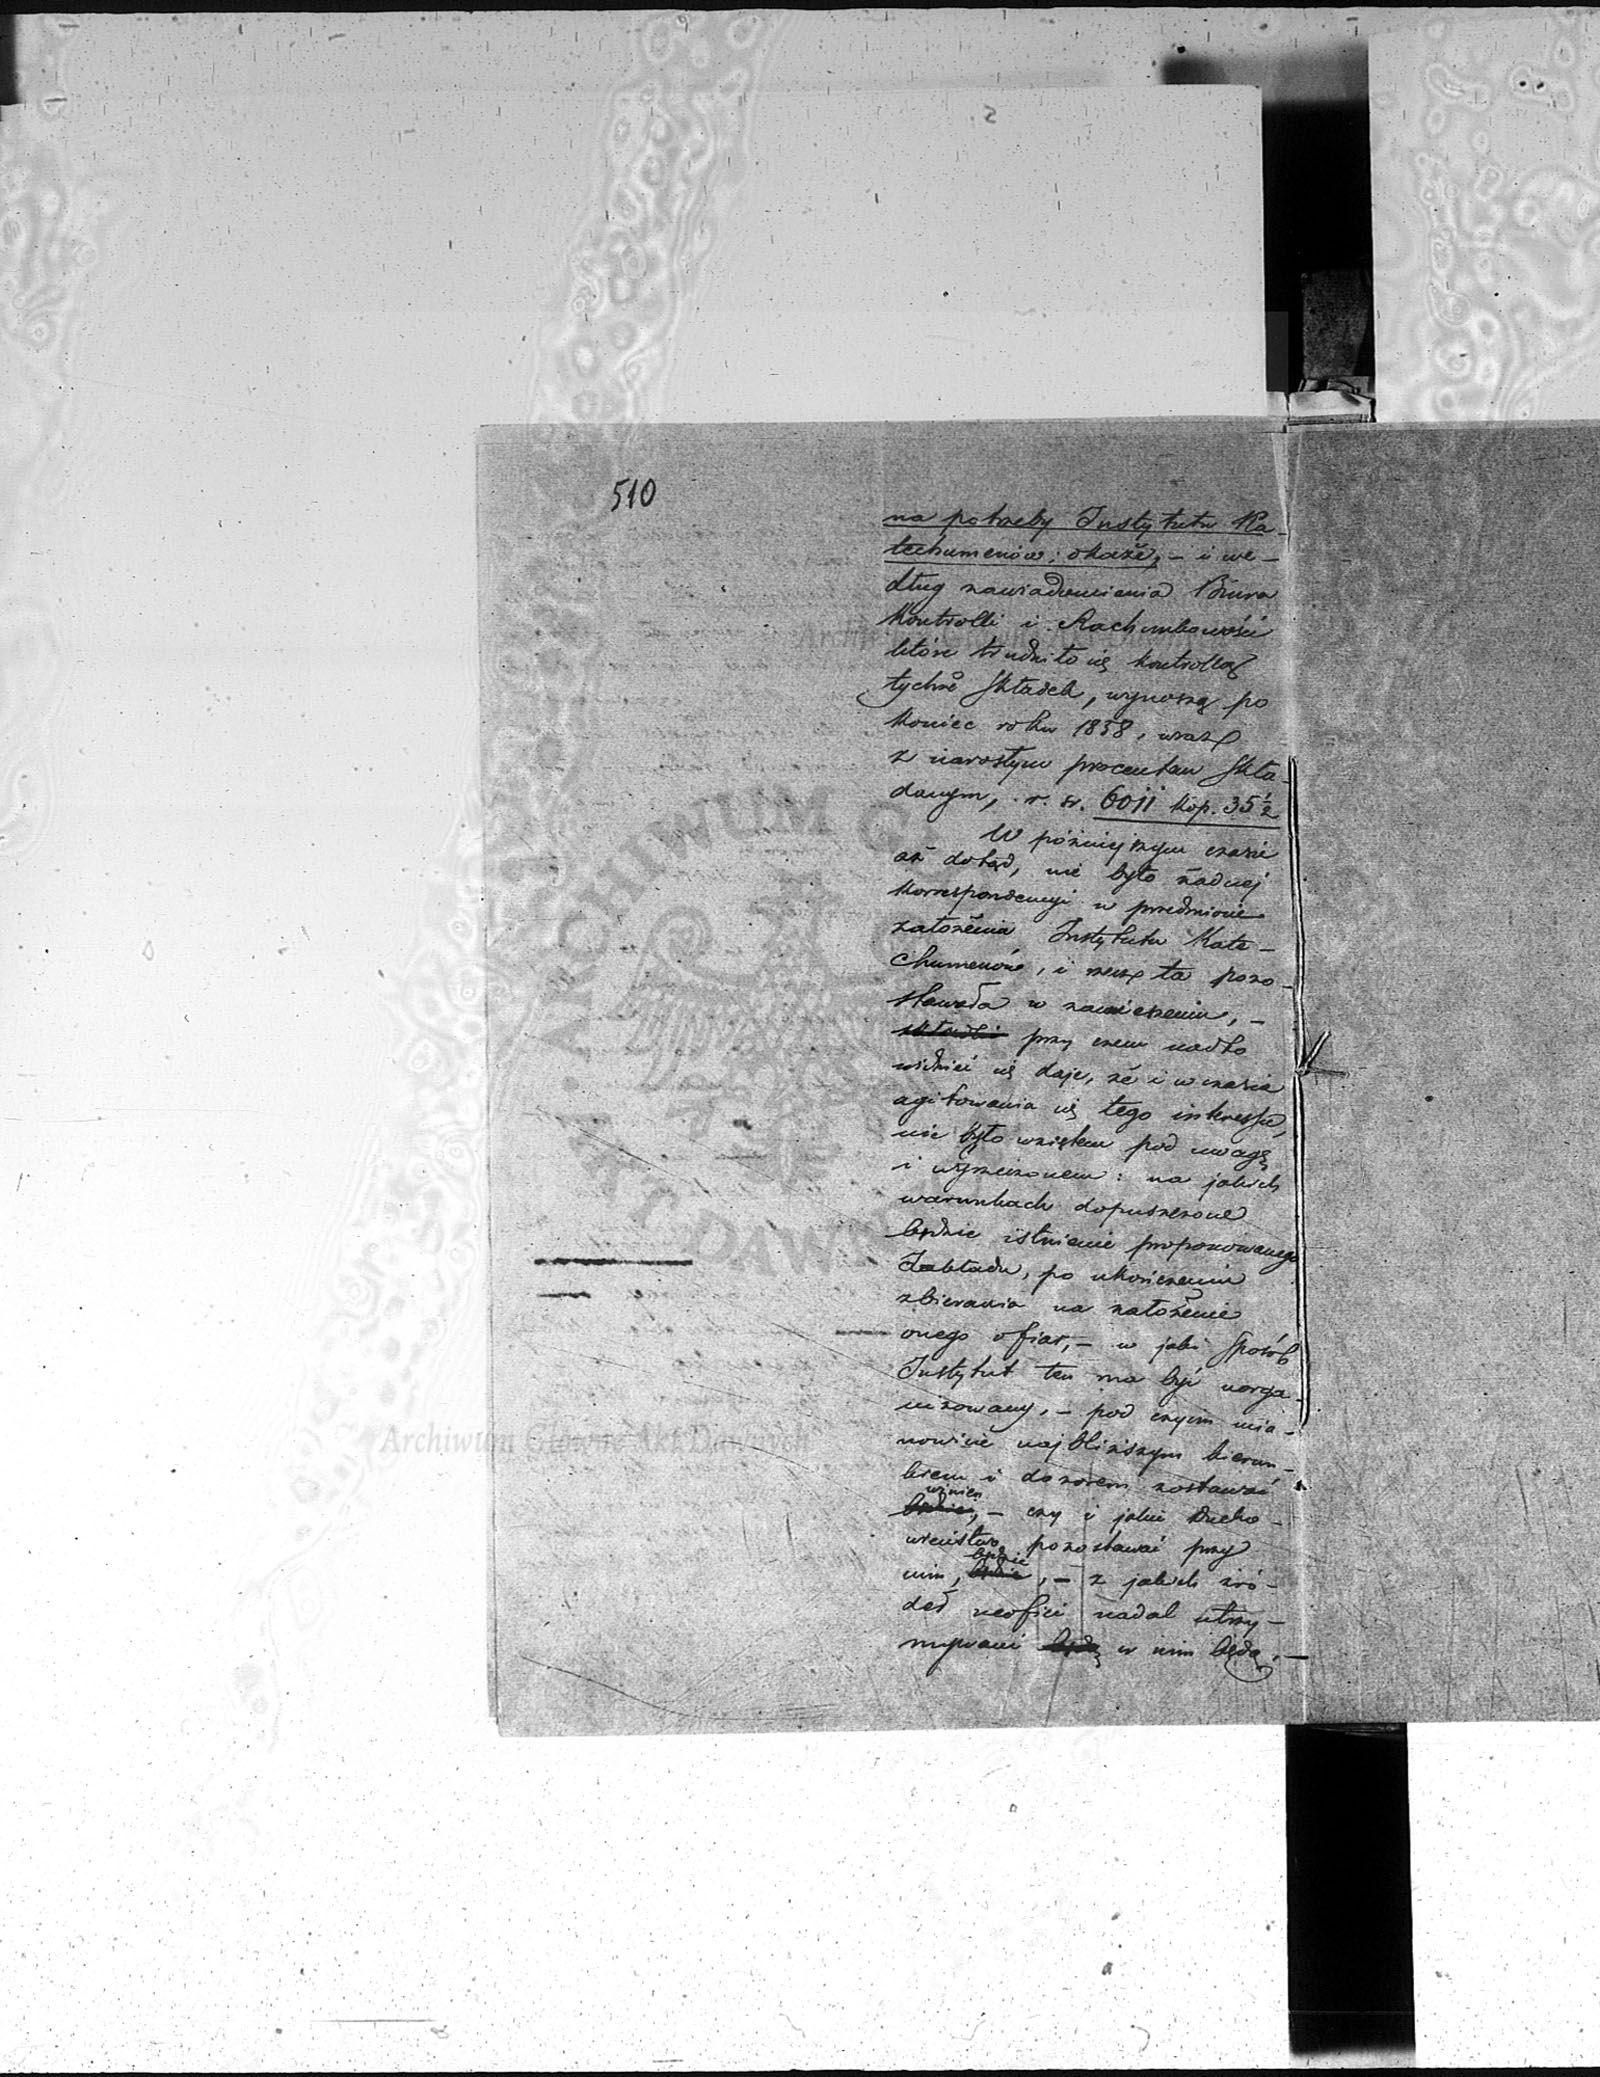 510
na potrzeby Instytutu Ka-
techumenów: okaże, – i we-
dług zawiadomienia Biura
Kontrolli i Rachunkowości
które trudniło się kontrollą
tychże Składek, wynoszą po
koniec roku 1838, wraz
z narosłym procentem skła-
danym, r. sr. 6011 kop. 35½
W późniejszym czasie
aż dotąd, nie było żadnej
korrespondencyi w przedmiocie
założenia Instytutu Kate-
chumenów, i rzecz ta pozo-
stawała w zawieszeniu, –
składki przy czem nadto
widzieć się daje, że i w czasie
agitowania się tego interessu,
nie było wziętem pod uwagę
i wyrzeczonem: na jakich
warunkach dopuszczone
będzie istnienie proponowanego
Zakładu, po ukończeniu
zbierania na założenie
onego ofiar, – w jaki sposób
Instytut ten ma być uorga-
nizowany, – pod czyim mia-
nowicie najbliższym kierun-
kiem i dozorem zostawać
winien
będzie, – czy i jakie Ducho-
wieństwo pozostawać przy
będzie
nim, będzie, – z jakich źró-
deł neofici nadal utrzy-
mywani będą w nim będą, –
ARCHIWUM GŁ
AKT DAWN
Archiwum Główne Akt Dawnych